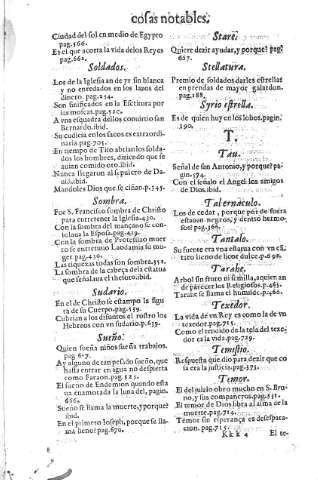 cosas notables.
Ciudad del sol en medio de Egypto
pag.566.
Es el que acorta la vida delos Reyes
pag.662.
Soldados.
Los de la Iglesia an de yr sin blanca
y no enredados en los lazos del
dinero.pag.234.
Son significados en la Escritura por
las moscas.pag.520.
A vna esquadra dellos conuirtio san
Bernardo.ibid.
Su cudicia en los sacos es extraordi-
naria.pag.705.
En tiempo de Tito abrian los solda-
dos los hombres, diziendo que se
auian comido oro.ibid.
Nunca llegaron al sepulcro de Da-
uid.ibid.
Mandoles Dios que se ciñan.p.545.
Sombra.
Fue S. Francisco sombra de Christo
para entretener la Iglesia.430.
Con la sombra del mançano se con-
solaua la Esposa.pag.429.
Con la sombra de Protesilao muer-
to se entretenia Laodamia su mu-
ger pag.430.
Las riquezas todas son sombra.552.
La sombra de la cabeça dela estatua
que señalaua el relox.ibid.
Sudario.
En el de Christo se estampo la figu
ra de su Cuerpo.pag.559.
Cubrian a los difuntos el rostro los
Hebreos con vn sudario.p.639.
Sueño.
Quien sueña niños sueña trabajos.
pag 617.
Ay alguno de tan pesado sueño, que
hasta entrar en agua no despierta
como Faraon.pag.525.
El sueño de Endemion quando esta
ua enamorada la luna del, pagin.
666.
Sueño se llama la muerte, y porque?
ibid.
En el primero Ioseph, porque se lla-
maua heno? pag.670.
Stare.
Quiere dezir ayudar, y porque? pag.
657.
Stellatura.
Premio de soldados darles estrellas
en prendas de mayor galardon.
pag.188.
Syrio estrella.
Es de quien huyen los lobos.pagin.
290.
T.
Tau.
Señal de san Antonio, y porque? pa-
gin.574.
Con el señalo el Angel los amigos
de Dios.ibid.
Tabernaculo.
Los de cedar, porque por de fuera
estauan negros, y dentro hermo-
sos? pag.386.
Tantalo.
Su suerte era vna estatua con vn cã
taro lleno de licor dulce.p.690.
Tarahe.
Arbol sin fruto ni semilla, a quien an
de parecer los Religiosos.p.463.
Tarahe se llama el humilde.p.460.
Texedor.
La vida de vn Rey es como la de vn
texedor.pag.715.
Como el remedio de la tela del texe-
dor es la vida.pag.729.
Temistio.
Respuesta que dio para dezir que co
sa era la justicia.pag.573.
Temor.
El del juizio obro mucho en S. Bru-
no, y sus compañeros.pag.531.
El temor de Dios libra al alma de la
muerte.pag.724.
Temor sin esperança es desespera-
cion.pag.715.
Kkk 4 El te-